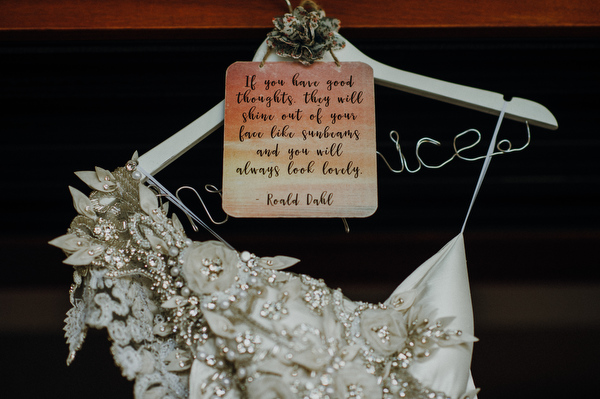 If you have good
thoughts, they will
shine out of your
face like sunbeams
and you will
always look lovely.
- Roald Dahl